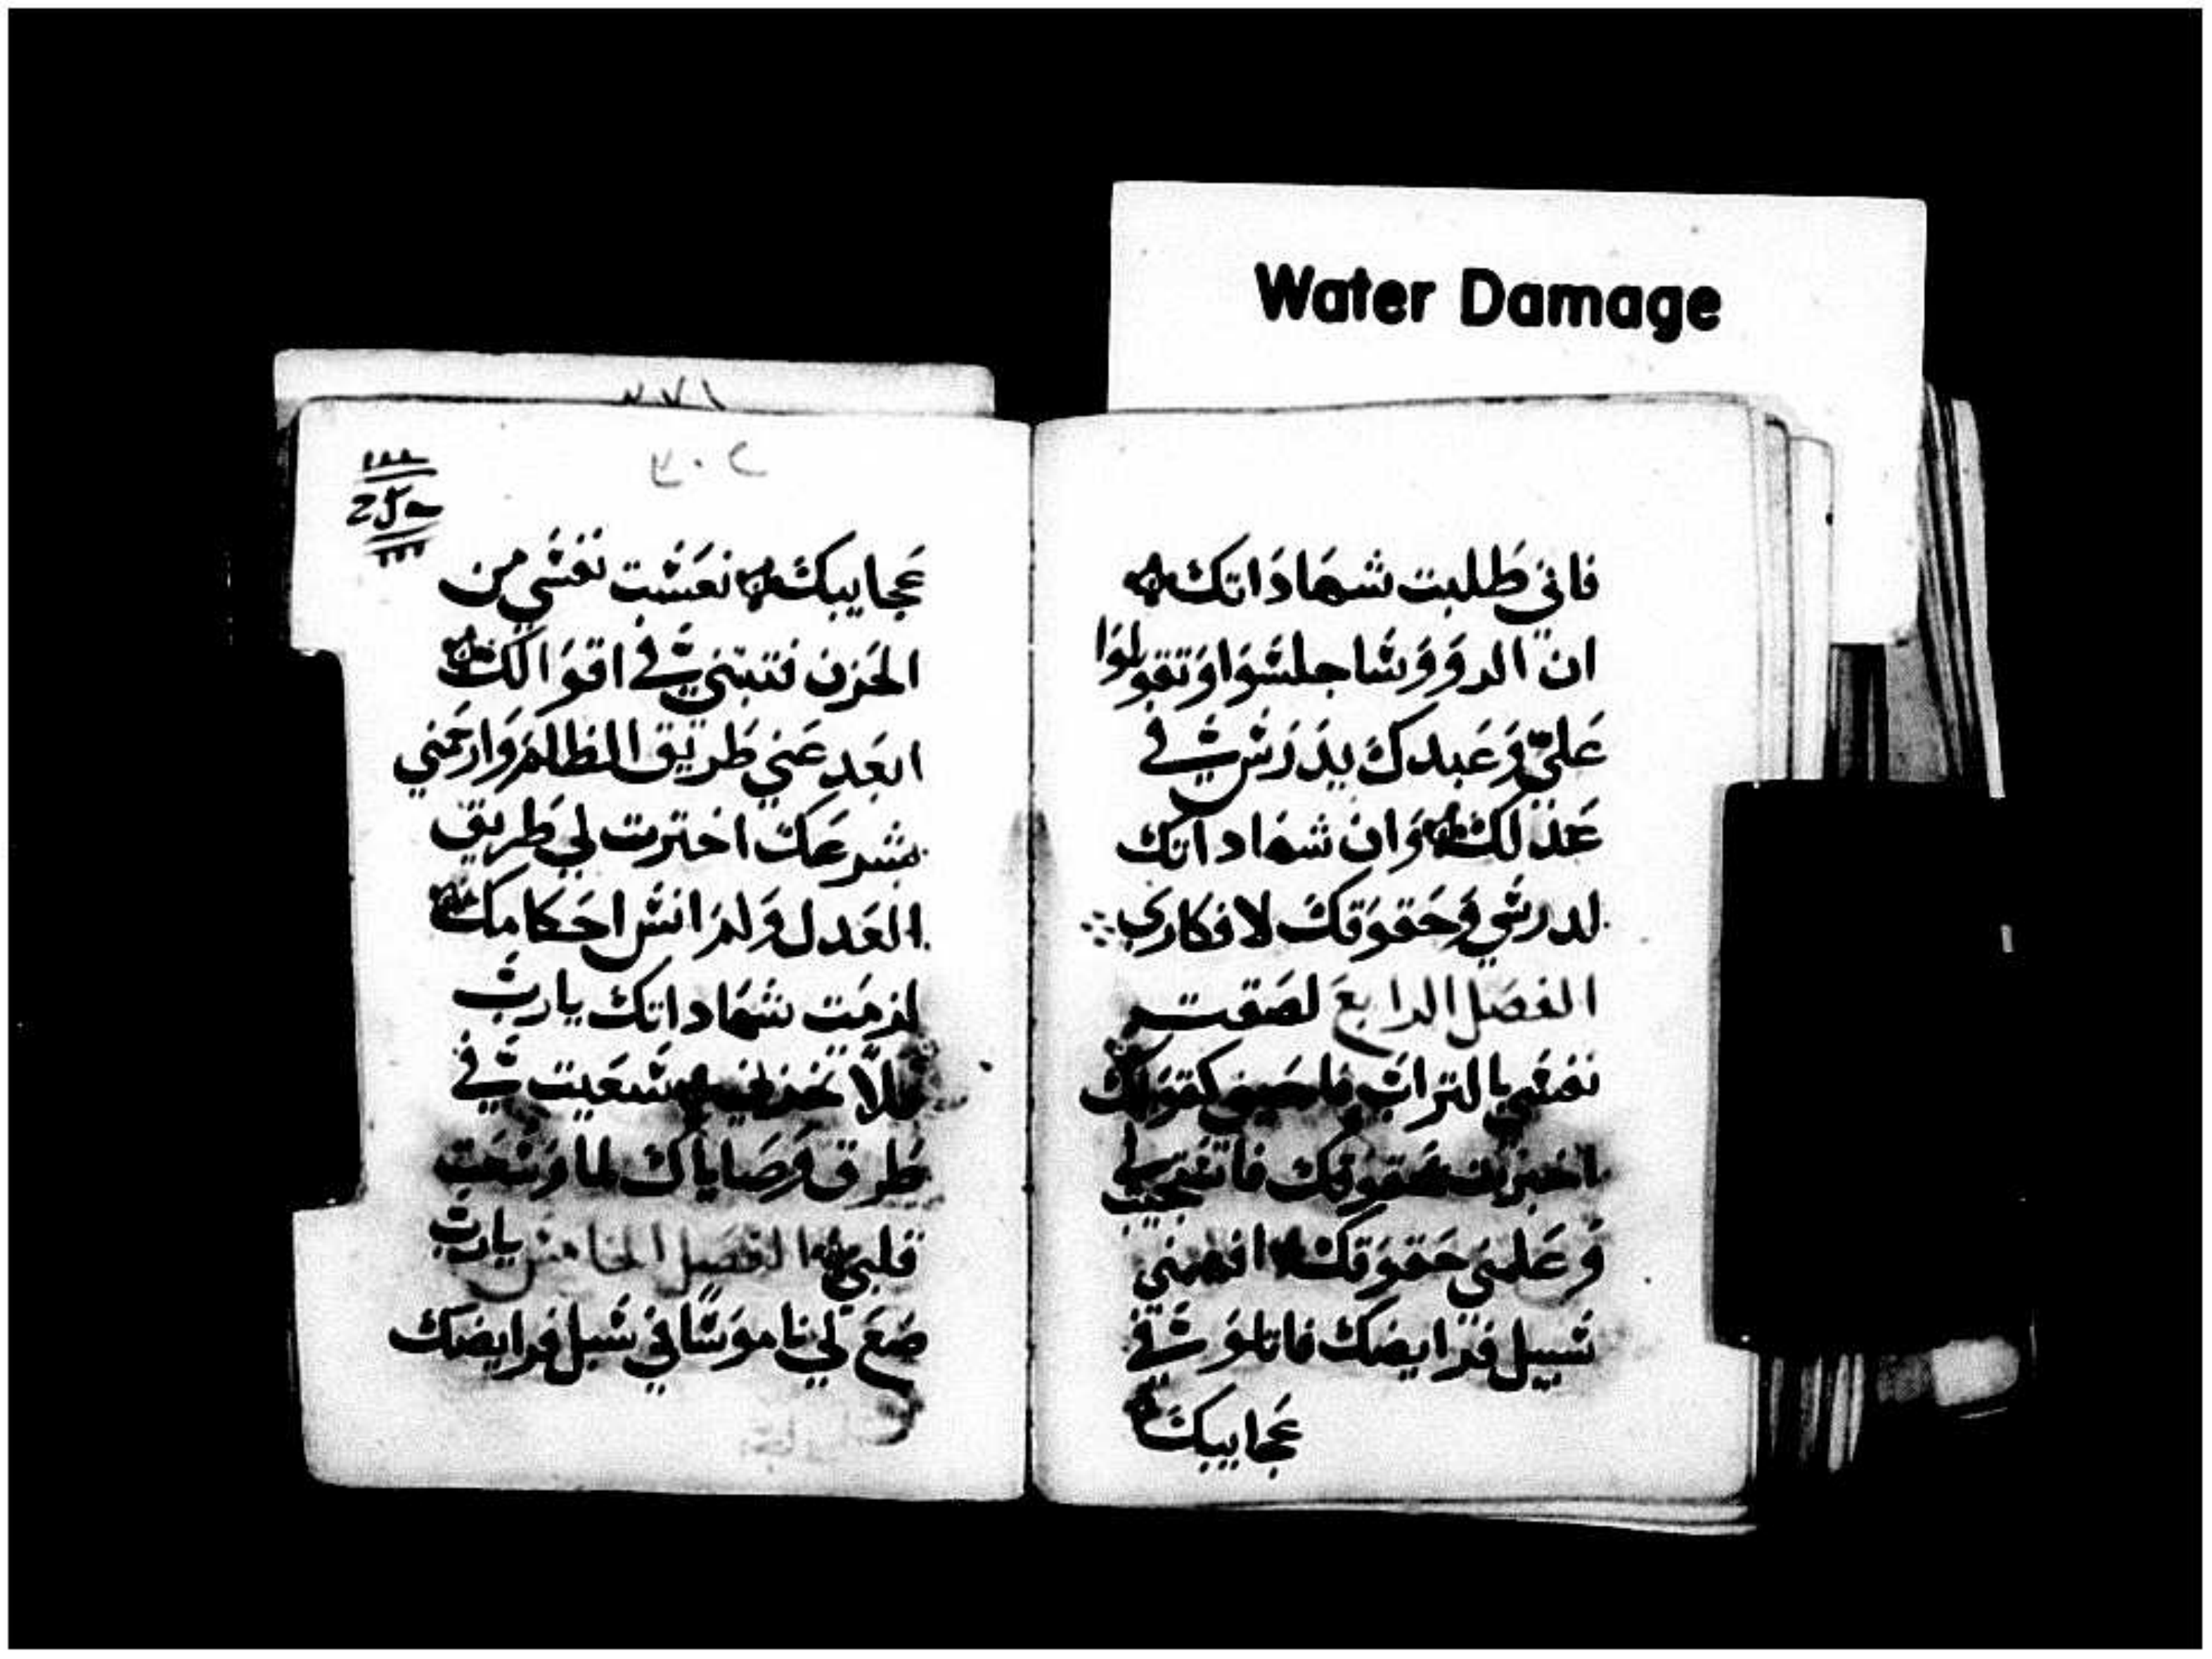 Water Damage
فاني طلبت شهاداتك
ان الروؤسا جلسوا وتقولوا
عليّ وَعبدك يدرس في
عدلك وان شهاداتك
لدرسي وحقوقك لافكاري
الفصل الرابع لصقت
نفسي بالتراب كقولك
اخبرتك بحقوقك
وَعلمني حقوقك افهمني
سبيل فرايضك فاتلو في
عجايبك
٣٠٢
عجايبك نعست نفسي من
الحزن فثبتني في اقوالك
ابعد عني طريق الظلم وارحمني
بشرعك اخترت لي طريق
العدل وَلم انس احكامك
لزمت شهاداتك يارب
فلا تخزني سعيت في
طرق وصاياك لما وسعت
قلبي الفصل الخامس يارب
ضع لي ناموسا في سبل فرايضك